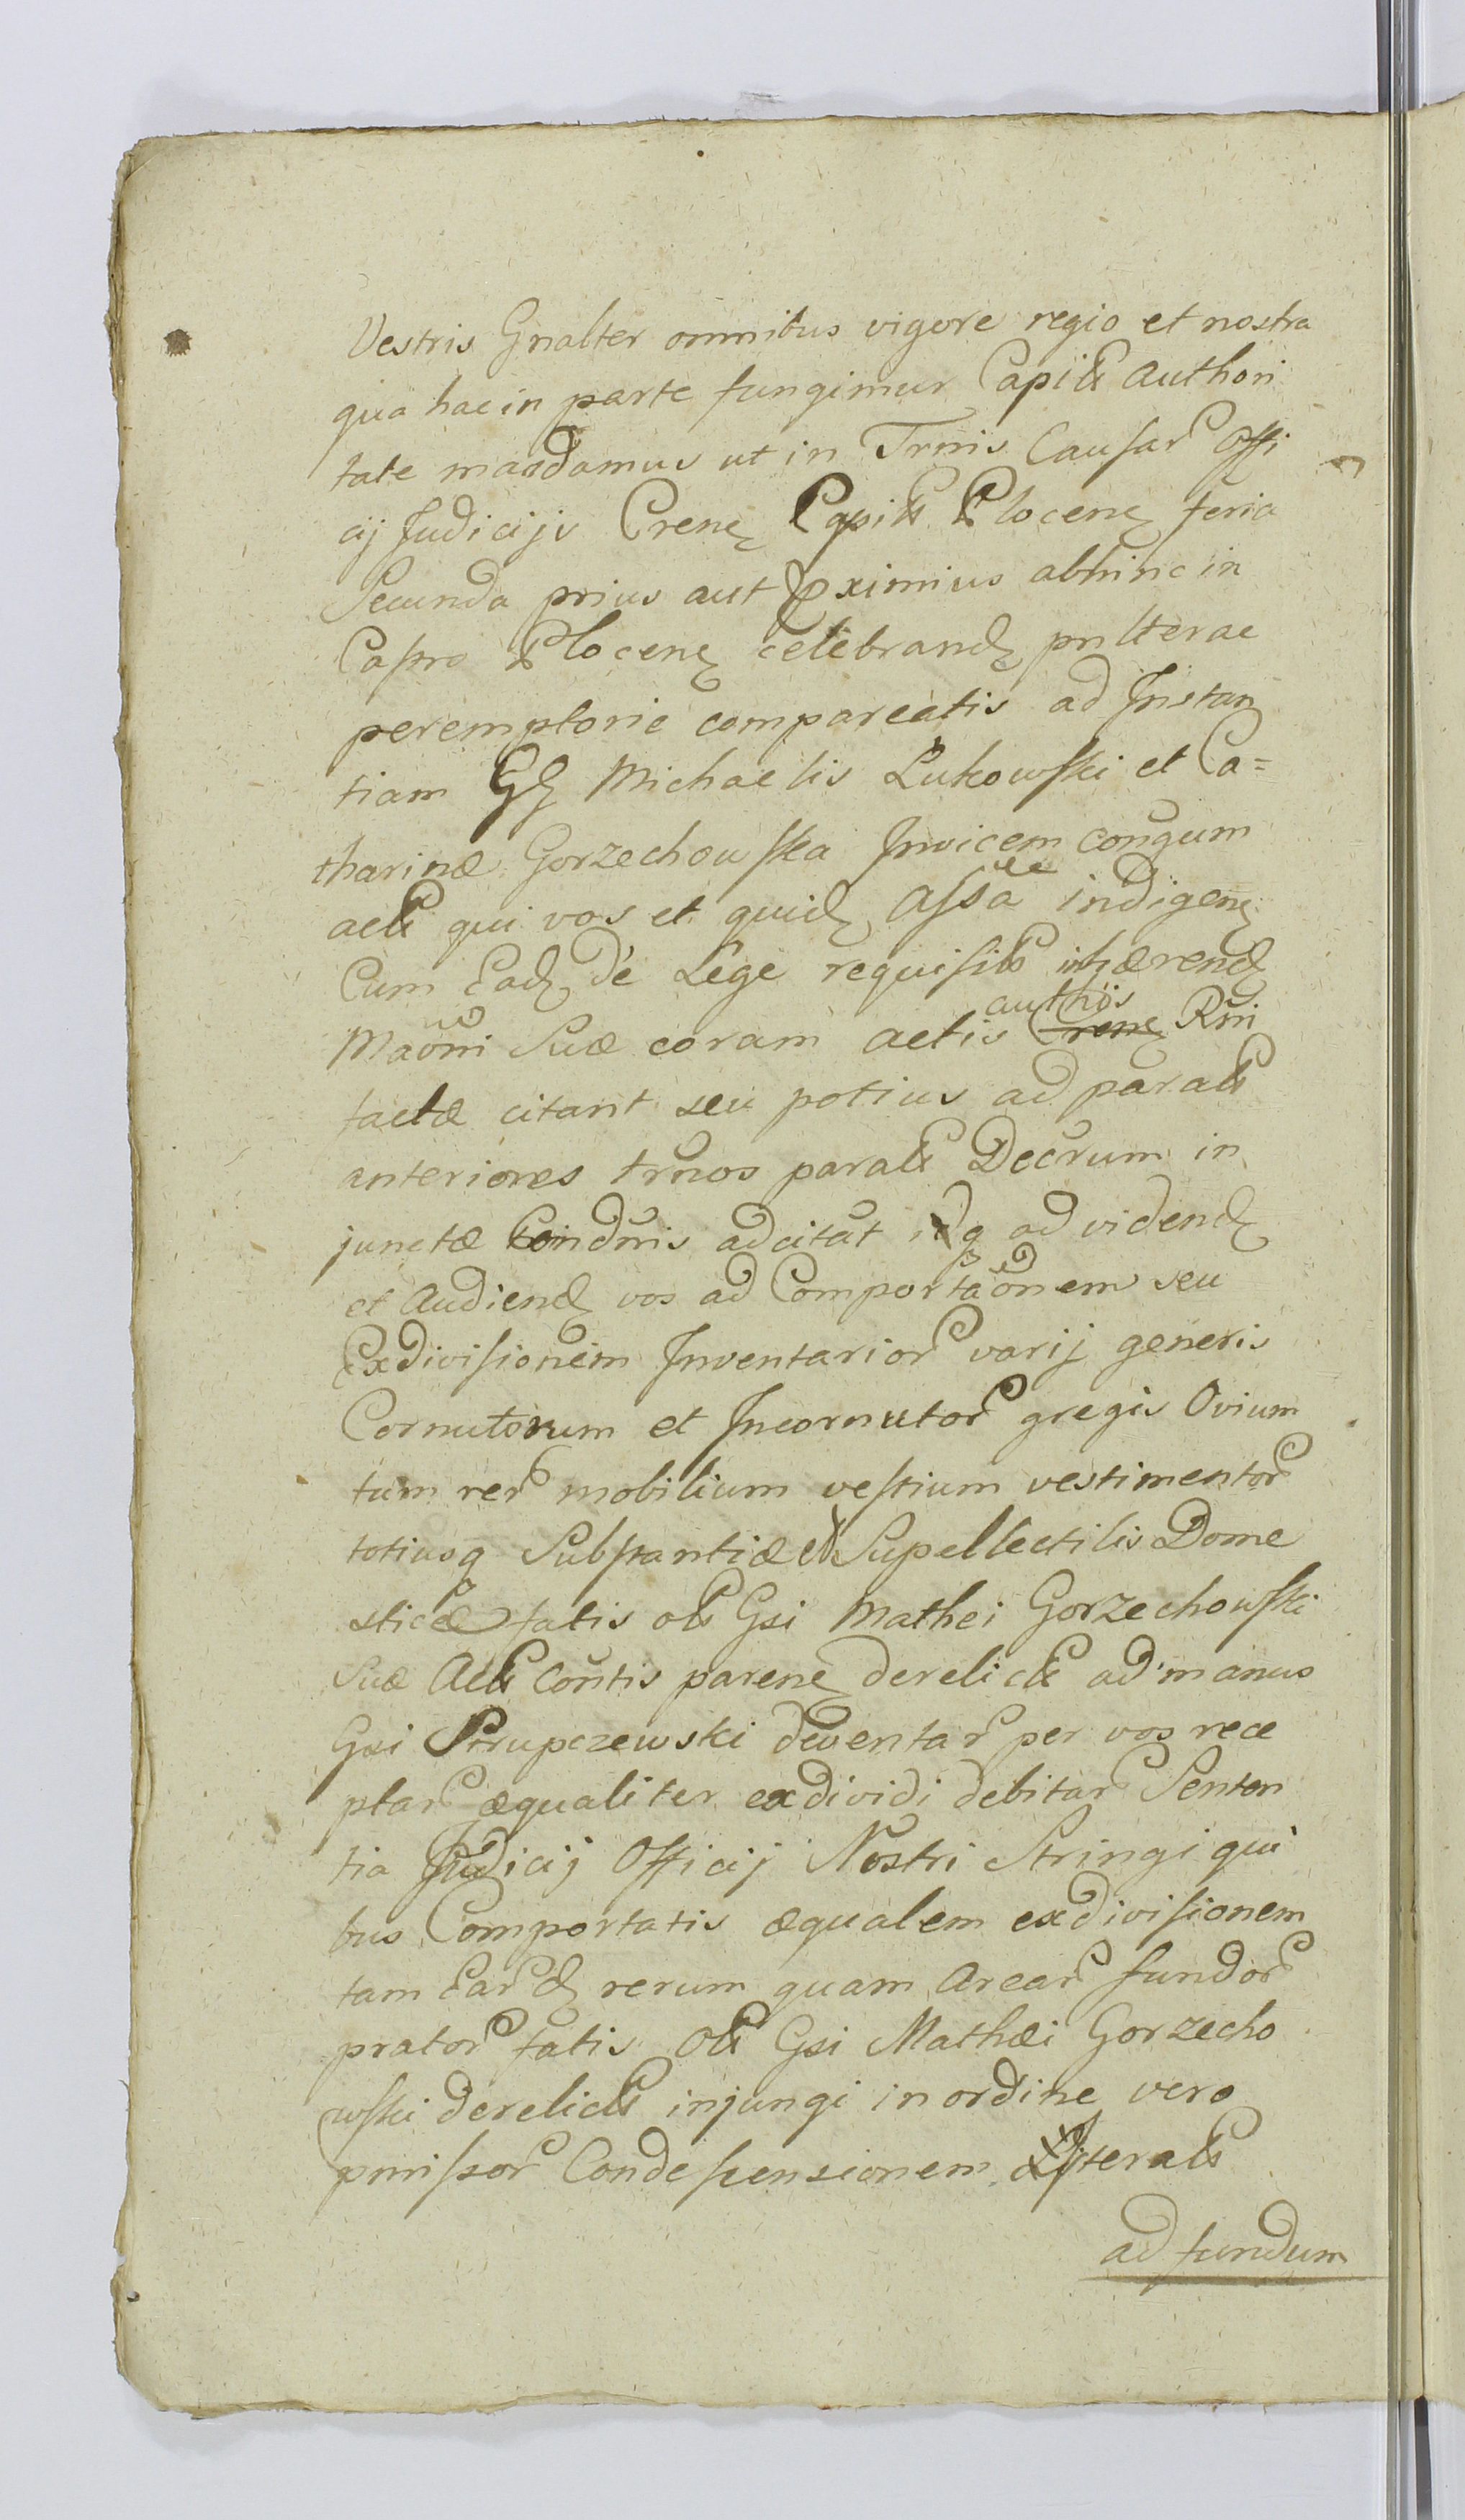 Vestris Gnalter omnibus vigore regio et nostra
qua hac in parte fungimur Capits Authori
tate mandamus ut in Trnis Causar Offi
cij Judicijs Crens Capits Plocens feria
Secunda prius aut proximius abhinc in
Castro Plocens celebrand pnlter ac
peremptorie compareatis ad Instan
tiam GG Michaelis Lukowski et Ca=
tharinæ Gorzechowska Invicem coñgum
acts qui vos et quid Assa indigens
Cum Ead de Lege requisits inhærend
Maõni Suæ coram actis authŏs Rmi
factæ citant seu potius ad parats
anteriores trños parats Decrum in
junctæ Condnis adcitat idq ad vidend
et Audiend vos ad Comportaõnem seu
Exdivisionem Inventarior varij generis
Cornutorum et Incornutor gregis Ovium
tum rer mobilium vestium vestimentor
totiusq Substantiæ et Supellectilis Dome
sticæ fatis ols Gsi Mathei Gorzechowski
Suæ Acts Coñtis parens derelicts ad manus
Gsi Strupczewski deventar per vos rece
ptar æqualiter exdividi debitar Senten
tia Judicij Officij Nostri Stringi qui
bus Comportatis æqualem exdivisionem
tam Eard rerum quam Arear fundor
prator fatis Ols Gsi Mathæi Gorzecho
wski derelicts injungi in ordine vero
pmissor Condescensionem Lïterals
ad fundum